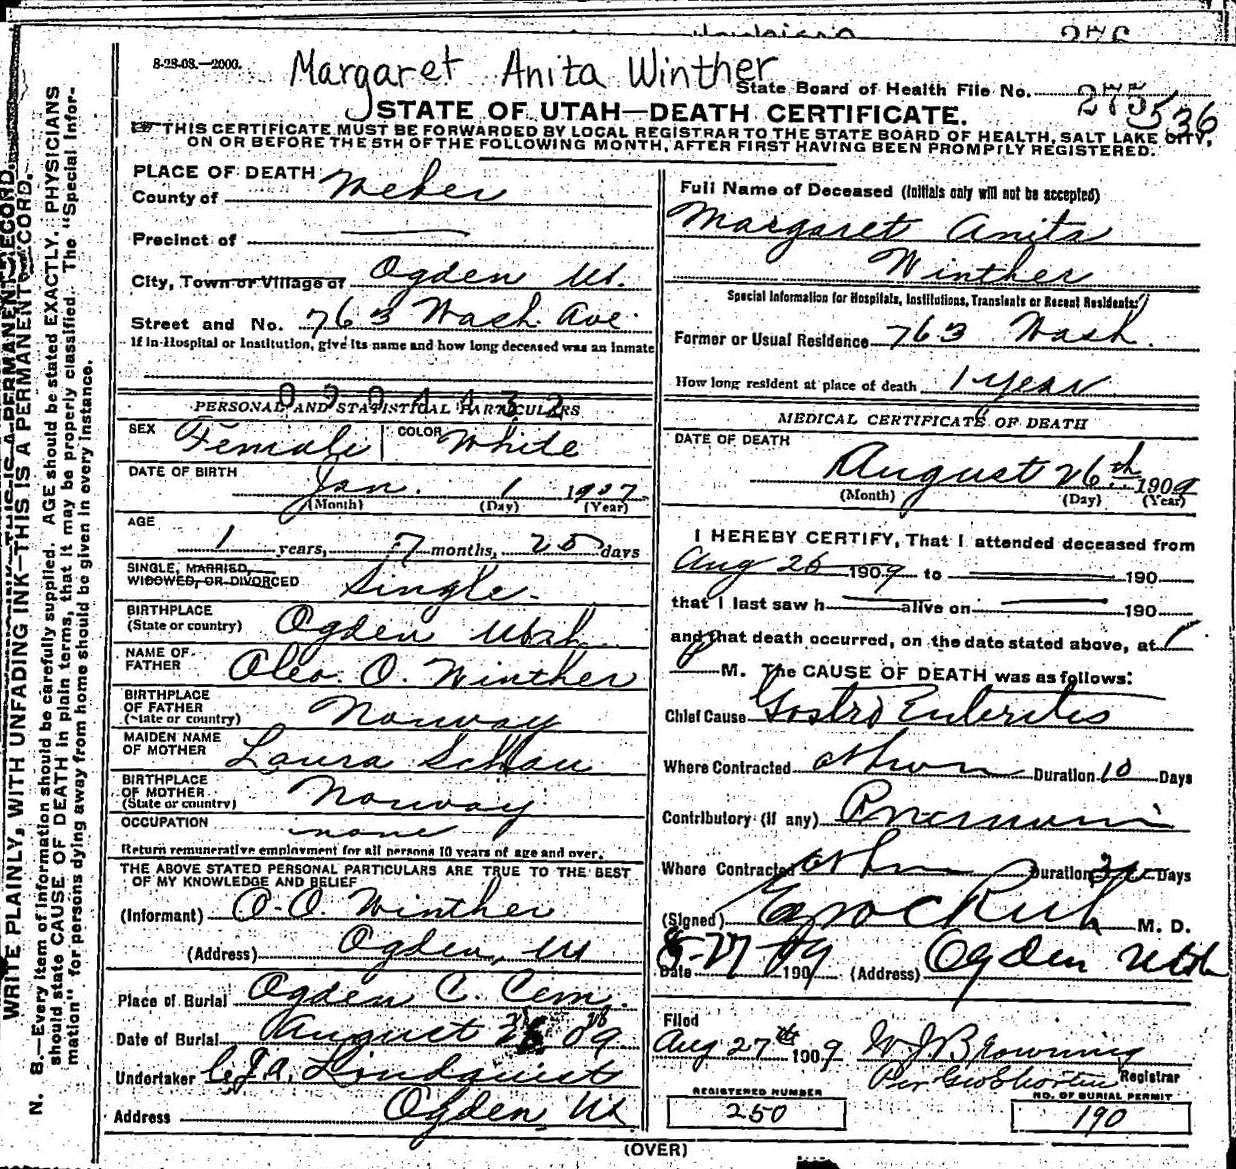 276
8-28-08.—2000.
Margaret Anita Winther
State Board of Health File No. 275 536
STATE OF UTAH—DEATH CERTIFICATE.
THIS CERTIFICATE MUST BE FORWARDED BY LOCAL REGISTRAR TO THE STATE BOARD OF HEALTH, SALT LAKE CITY,
ON OR BEFORE THE 5TH OF THE FOLLOWING MONTH, AFTER FIRST HAVING BEEN PROMPTLY REGISTERED.
WRITE PLAINLY, WITH UNFADING INK—THIS IS A PERMANENT RECORD.
N. B.—Every item of information should be carefully supplied. AGE should be stated EXACTLY. PHYSICIANS
should state CAUSE OF DEATH in plain terms, that it may be properly classified. The "Special Infor-
mation" for persons dying away from home should be given in every instance.
PLACE OF DEATH:
County of Weber
Precinct of
City, Town or Village of Ogden Ut.
Street and No. 763 Wash. Ave.
If in Hospital or Institution, give its name and how long deceased was an inmate
0904432
PERSONAL AND STATISTICAL PARTICULARS
SEX Female COLOR White
DATE OF BIRTH
Jan. 1 1907
(Month) (Day) (Year)
AGE
1 years, 7 months, 25 days
SINGLE, MARRIED,
WIDOWED, OR DIVORCED Single
BIRTHPLACE
(State or country) Ogden Utah
NAME OF
FATHER Oleo. O. Winther
BIRTHPLACE
OF FATHER
(State or country) Norway
MAIDEN NAME
OF MOTHER Laura Schau
BIRTHPLACE
OF MOTHER
(State or country) Norway
OCCUPATION
none
Return remunerative employment for all persons 10 years of age and over.
THE ABOVE STATED PERSONAL PARTICULARS ARE TRUE TO THE BEST
OF MY KNOWLEDGE AND BELIEF
(Informant) O. O. Winther
(Address) Ogden, Ut
Place of Burial Ogden C. Cem.
Date of Burial August 09
Undertaker Lindquist
Address Ogden, Ut
Full Name of Deceased (Initials only will not be accepted)
Margaret Anita
Winther
Special Information for Hospitals, Institutions, Transients or Recent Residents:
Former or Usual Residence 763 Wash.
How long resident at place of death 1 year
MEDICAL CERTIFICATE OF DEATH
DATE OF DEATH
August 26th 1909
(Month) (Day) (Year)
I HEREBY CERTIFY, That I attended deceased from
Aug 26 1909 to 190
that I last saw h alive on 190
and that death occurred, on the date stated above, at 1
M. The CAUSE OF DEATH was as follows:
Chief Cause Gastro Enteritis
Where Contracted at home Duration 10 Days
Contributory (if any) Pneumonia
Where Contracted at home Duration Days
(Signed) M. D.
Date 8-27 1909 (Address) Ogden Utah
Filed
Aug 27th 1909 W J Browning
Registrar
REGISTERED NUMBER
250
NO. OF BURIAL PERMIT
190
(OVER)